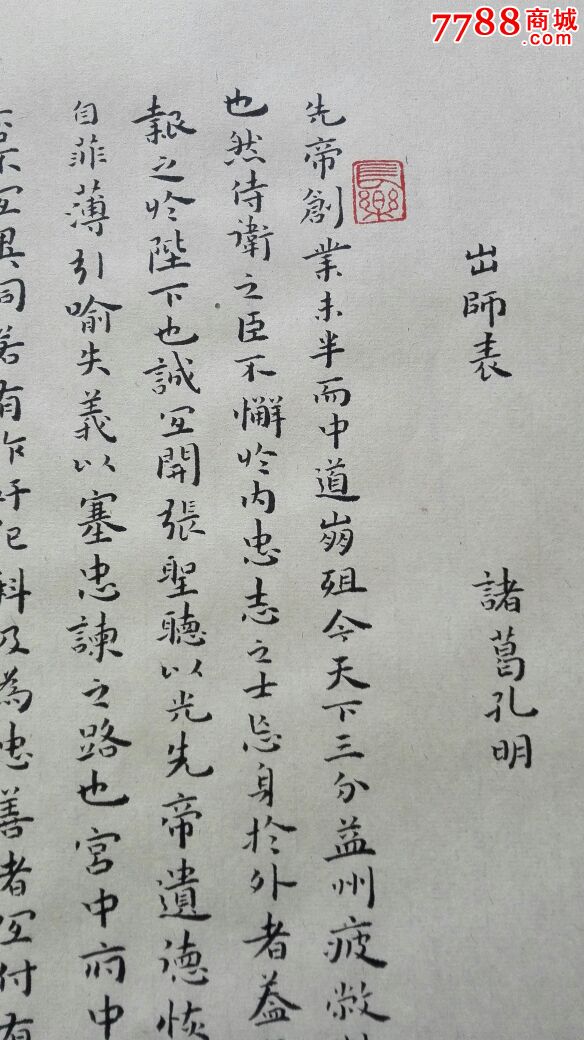 7788商城
.com
出師表
諸葛孔明
長樂
先帝創業未半而中道崩殂今天下三分益州疲敝
也然侍衛之臣不懈於内忠志之士忘身於外者蓋
報之於陛下也誠宜開張聖聽以光先帝遺德恢
自菲薄引喻失義以塞忠諫之路也宮中府中
不宜異同若有作奸犯科及為忠善者宜付有